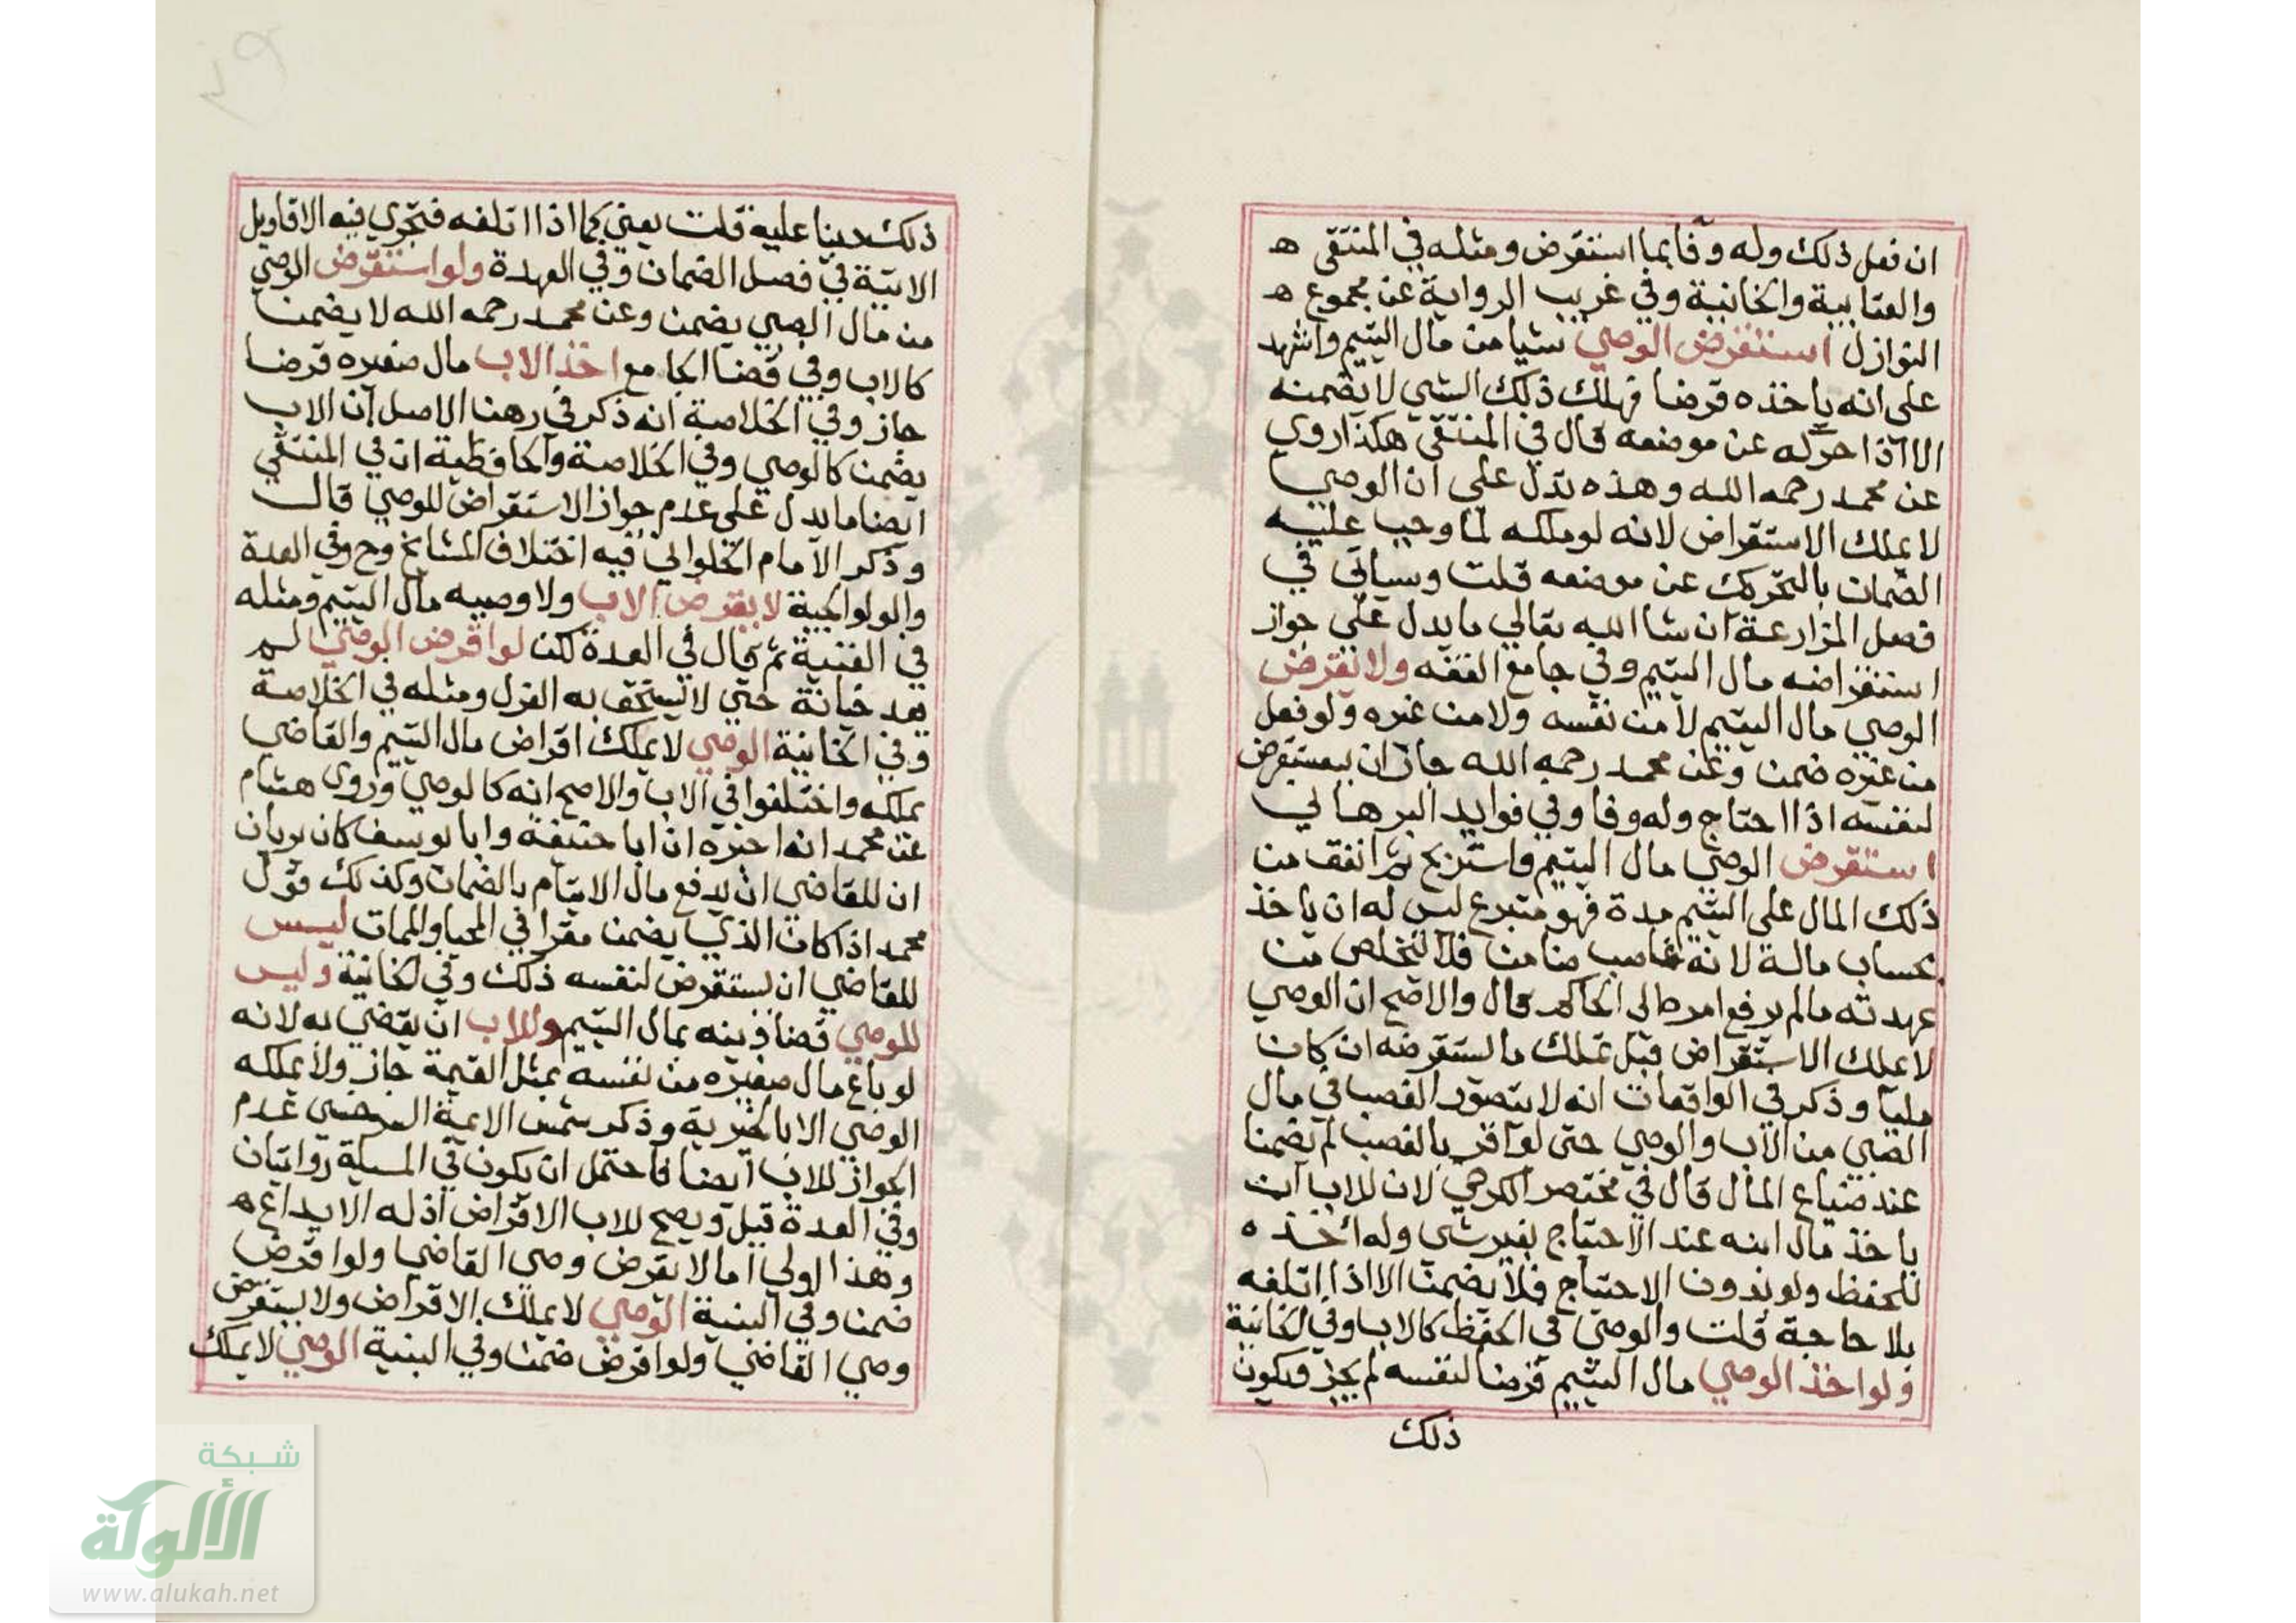 ان فعل ذلك وله وفا بما استقرض ومثله في المنتقى ه
والعتابية والخانية وفي غريب الرواية عن مجموع ه
النوازل استقرض الوصي شيا من مال اليتيم واشهد
على انه ياخذه قرضا فهلك ذلك الشي لا يضمنه
الا اذا حركه عن موضعه قال في المنتقى هكذا روي
عن محمد رحمه الله وهذه تدل على ان الوصي
لا يملك الاستقراض لانه لو ملكه لما وجب عليه
الضمان بالتحريك عن موضعه قلت وسياتي في
فصل المزارعة ان شا الله تعالي ما يدل علي جواز
استقراضه مال اليتيم وفي جامع الفقه ولا يقرض
الوصي مال اليتيم لا من نفسه ولا من غيره ولو فعل
من غيره ضمن وعن محمد رحمه الله جاز ان يستقرض
لنفسه اذا احتاج وله وفا وفي فوايد البرهاني
استقرض الوصي مال اليتيم واستربح ثم انفق من
ذلك المال على اليتيم مدة فهو متبرع ليس له ان ياخذ
بحساب ماله لانه غاصب ضامن فلا يتخلص من
عهدته ما لم يرفع امره الى الحاكم قال والاصح ان الوصي
لا يملك الاستقراض قبل تملك ما استقرضه ان كان
مليا وذكر في الواقعات انه لا يتصور الغصب في مال
الصبي من الاب والوصي حتى لو اقر بالغصب لم يضمنا
عند ضياع المال قال في مختصر الكرخي لان للاب ان
ياخذ مال ابنه عند الاحتياج بغير شي وله اخذه
للحفظ ولو بدون الاحتياج فلا يضمن الا اذا اتلفه
بلا حاجة قلت والوصي في الحفظ كالاب وفي الخانية
ولو اخذ الوصي مال اليتيم قرضا لنفسه لم يجز فيكون
ذلك
ذلك دينا عليه قلت يعني كما اذا اتلفه فتجري فيه الاقاويل
الاتية في فصل الضمان وفي العهدة ولو استقرض الوصي
من مال الصبي يضمن وعن محمد رحمه الله لا يضمن
كالاب وفي قضا الجامع اخذ الاب مال صغيره قرضا
جاز وفي الخلاصة انه ذكر في رهن الاصل ان الاب
يضمن كالوصي وفي الخلاصة والحافظية ان في المنتقي
ايضا ما يدل علي عدم جواز الاستقراض للوصي قال
وذكر الامام الحلواني فيه اختلاف المشايخ وح وفي العدة
والولوالجية لا يقرض الاب ولا وصيه مال اليتيم ومثله
في القنية ثم قال في العدة لكن لو اقرض الوصي لم
يعد خيانة حتي لا يستحق به العزل ومثله في الخلاصة
وفي الخانية الوصي لا يملك اقراض مال اليتيم والقاضي
يملكه واختلفوا في الاب والاصح انه كالوصي وروى هشام
عن محمد انه اخبره ان ابا حنيفة وابا يوسف كان يريان
ان للقاضي ان يدفع مال الايتام بالضمان وكذلك قول
محمد اذا كان الذي يضمن مقرا في المحيا والممات ليس
للقاضي ان يستقرض لنفسه ذلك وفي الخانية وليس
للوصي قضا دينه بمال اليتيم وللاب ان يقضي به لانه
لو باع مال صغيره من نفسه بمثل القيمة جاز ولا يملكه
الوصي الا بالخيرية وذكر شمس الايمة السرخسي عدم
الجواز للاب ايضا فاحتمل ان يكون في المسيلة روايتان
وفي العدة قيل ويصح للاب الاقراض اذ له الايداع ه
وهذا اولي اما لا يقرض وصي القاضي ولو اقرض
ضمن وفي البنية الوصي لا يملك الاقراض ولا يستقرض
وصي القاضي ولو اقرض ضمن وفي البنية الوصي لا يملك
شبكة
الألوكة
www.alukah.net